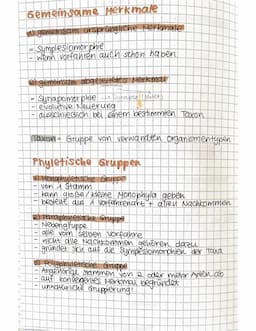 Gemeinsame Merkmale
a) gemeinsam ursprüngliche Merkmale
- Symplesiomorphie
- wenn Vorfahren auch schon haben
b) gemeinsam abgeleitetes Merkmal
- Synapomorphie
- evolutive Neuerung
- ausschließlich bei einem bestimmten Taxon
Taxon = Gruppe von verwandten Organismentypen
Phyletische Gruppen
a) Monophyletische Gruppe
- von 1 Stamm
- kann große / kleine Monophyla geben
- besteht aus 1 Vorfahrenart + allen Nachkommen
b) Paraphyletische Gruppe
- Nebengruppe
- alle vom selben Vorfahre
- nicht alle Nachkommen gehören dazu
- gründet sich auf die Symplesiomorphien der Taxa
c) Polyphyletische Gruppe
- Angehörige stammen von 2 oder mehr Arten ab
- auf konvergentes Merkmal begründet
- unnatürliche Gruppierung!